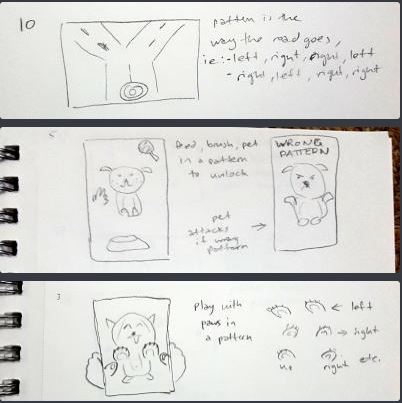 10
pattern is the
way the road goes,
ie:- left, right, right, left
- right, left, right, right
5
feed, brush, pet
in a pattern
to unlock
WRONG
PATTERN
pet
attacks
if wrong
pattern
3
Play with
paws in
a pattern
← left
→ right
right etc.